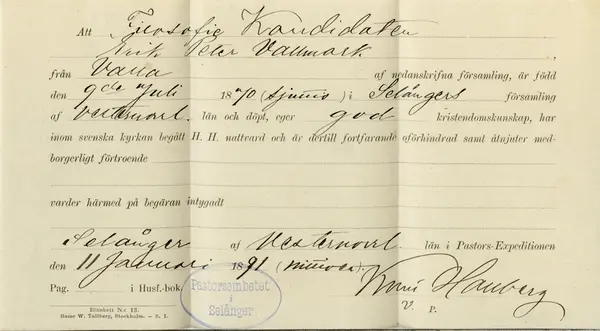 Att Filosofie Kandidaten
Erik Peter Vallmark
från Valla af nedanskrifna församling, är född
den 9de Juli 1870 (sjuttio) i Selångers församling
af Vesternorrl. län och döpt, eger god kristendomskunskap, har
inom svenska kyrkan begått H. H. nattvard och är dertill fortfarande oförhindrad samt åtnjuter med-
borgerligt förtroende
varder härmed på begäran intygadt
Selånger af Vesternorrl. län i Pastors-Expeditionen
den 11 Januari 1891 (nittioett)
Pag. i Husf.-bok.
Pastorsembetet
i
Selånger
Hamberg
V. P.
Blankett N:r 13.
Isaac W. Tallberg, Stockholm. – S. I.